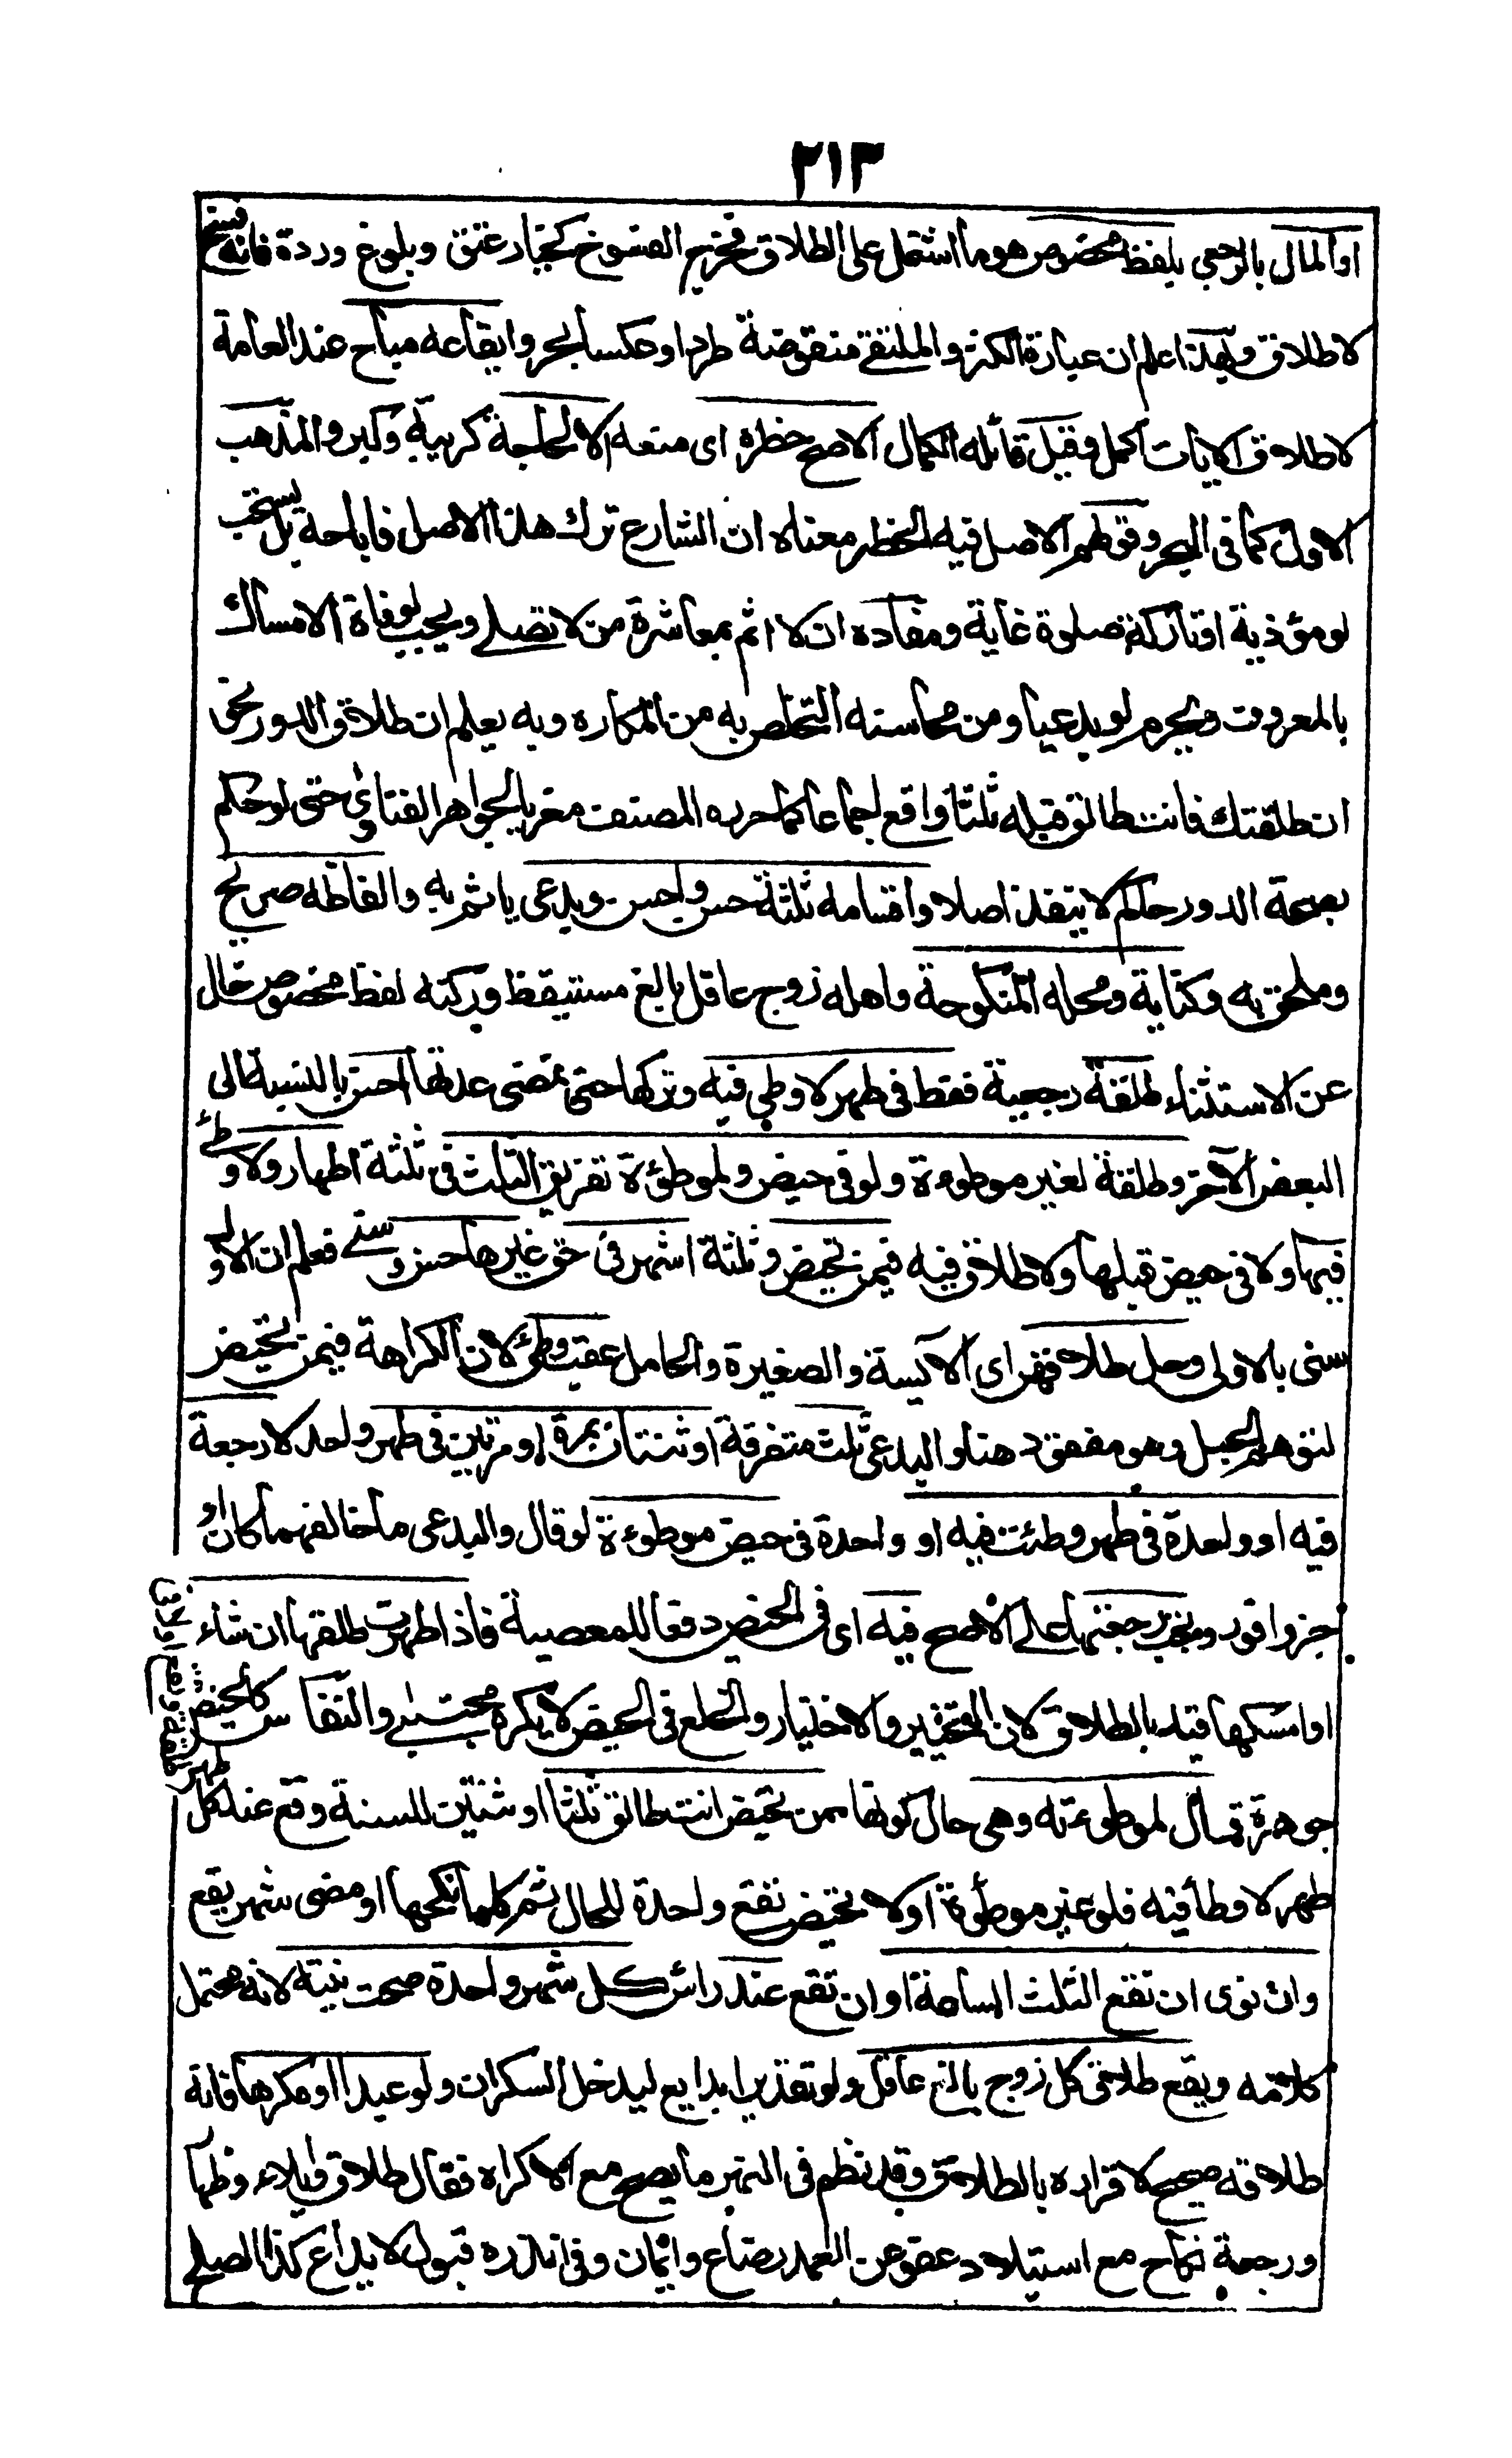 ٢١٣
او المال بالرجعي بلفظ مخصوص هو ما اشتمل على الطلاق فخرج الفسوخ كخيار عتق وبلوغ وردة فانه فسخ
لا طلاق وبهذا علم ان عبارة الكنز والملتقى منقوضة طردا وعكسا بحر وايقاعه مباح عند العامة
لاطلاق الايات اكمل وقيل قائله الكمال الاصح حظره اى منعه الا لحاجة كريبة وكبر والمذهب
الاول كما فى البحر وقولهم الاصل فيه الحظر معناه ان الشارع ترك هذا الاصل فاباحه بل يستحب
لو مؤذية او تاركة صلوة غاية ومفاده ان لا اثم بمعاشرة من لا تصلى ويجب لو فاة الامساك
بالمعروف ويحرم لو بدعيا ومن محاسنه التخلص به من المكاره وبه يعلم ان طلاق الدور نحو
ان طلقتك فانت طالق قبله ثلثا واقع اجماعا كما حرره المصنف معزيا لجواهر الفتاوى حتى لو حكم
بصحة الدور حاكم لا ينفذ اصلا واقسامه ثلثة حسن واحسن وبدعى ياثم به والفاظه صريح
وملحق به وكناية ومحله المنكوحة واهله زوج عاقل بالغ مستيقظ وركنه لفظ مخصوص خال
عن الاستثناء طلقة رجعية فقط فى طهر لا وطى فيه وتركها حتى تمضى عدتها احسن بالنسبة الى
البعض الآخر وطلقة لغير موطوءة ولو فى حيض ولموطؤة تفريق الثلث فى ثلثة اطهار ولا وطئ
فيها ولا فى حيض قبلها ولا طلاق فيه فيمن تحيض وثلثة اشهر فى حق غيرها حسن وسنى فعلم ان الاول
سنى بالاولى وحل طلاقهن اى الآيسة والصغيرة والحامل عقيب وطئ لان الكراهة فيمن تحيض
لتوهم الحبل وهو مفقود هنا والبدعى ثلث متفرقة او ثنتان بمرة او مرتين فى طهر واحد لا رجعة
فيه او واحدة فى طهر وطئت فيه او واحدة فى حيض موطوءة لو قال والبدعى ما خالفهما كان او
جز وافود وتجب رجعتها على الاصح فيه اى فى الحيض دفعا للمعصية فاذا طهرت طلقها ان شاء
او امسكها قيد بالطلاق لان التخيير والاختيار والخلع فى الحيض لا يكره مجتبى والنفاس كالحيض
جوهرة قال لموطوءته وهى حال كونها ممن تحيض انت طالق ثلثا او ثنتين للسنة وقع عند كل طهر
طهر لا وطأ فيه فلو غير موطؤة او لا تحيض تقع واحدة للحال ثم كلما نكحها او مضى شهر يقع
وان نوى ان تقع الثلث الساعة او ان تقع عند راس كل شهر واحدة صحت نيته لانه محتمل
كلامه ويقع طلاق كل زوج بالغ عاقل ولو تقديرا بدايع ليدخل السكران ولو عبدا او مكرها فانه
طلاقه صحيح لا قراره بالطلاق وقد نظم فى النهر ما يصح مع الاكراه فقال طلاق وايلاء وظهار
ورجعة نكاح مع استيلاد عفو عن العمد رضاع وايمان وفى ونذره قبول لايداع كذا الصلح